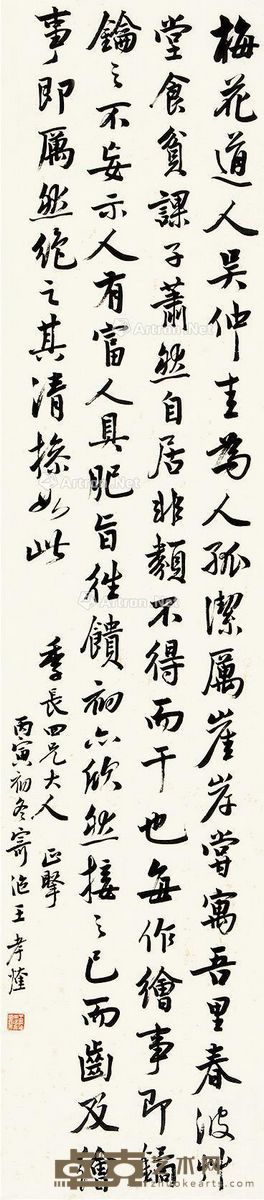 梅花道人吴仲圭為人孤潔厲崖岸嘗寓吾里春波草
堂食貧課子蕭然自居非類不得而干也每作繪事即鐍
鑰之不妄示人有富人具肥旨往饋初亦欣然接之已而齒及繪
事即厲然絶之其清操如此
季長四兄大人 正擘
丙寅初冬寄洍王孝
Artron.Net
Artron.Net
Artron.Net
Artron.Net
卓克艺术网
http://www.zhuokearts.com